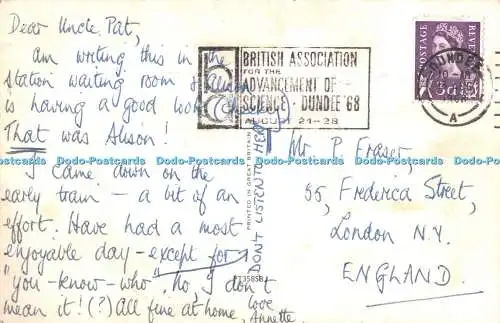 Dear Uncle Pat,
am writing this in the
station waiting room & Alison
is having a good look
(cheeky)
That was Alison!
I came down on the
early train – a bit of an
effort. Have had a most
enjoyable day – except for
"you-know-who". No, I don't
mean it! (?) All fine at home,
love
Annette
DON'T LISTEN TO HER
PRINTED IN GREAT BRITAIN
PT35858
BRITISH ASSOCIATION
FOR THE
ADVANCEMENT OF
SCIENCE · DUNDEE '68
AUGUST 21-28
DUNDEE
A
POSTAGE
REVENUE
3d
Mr P Fraser,
55, Frederica Street,
London N.7.
ENGLAND.
Dodo-Postcards Dodo-Postcards Dodo-Postcards Dodo-Postcards Dodo-Postcards Dodo-Postcards